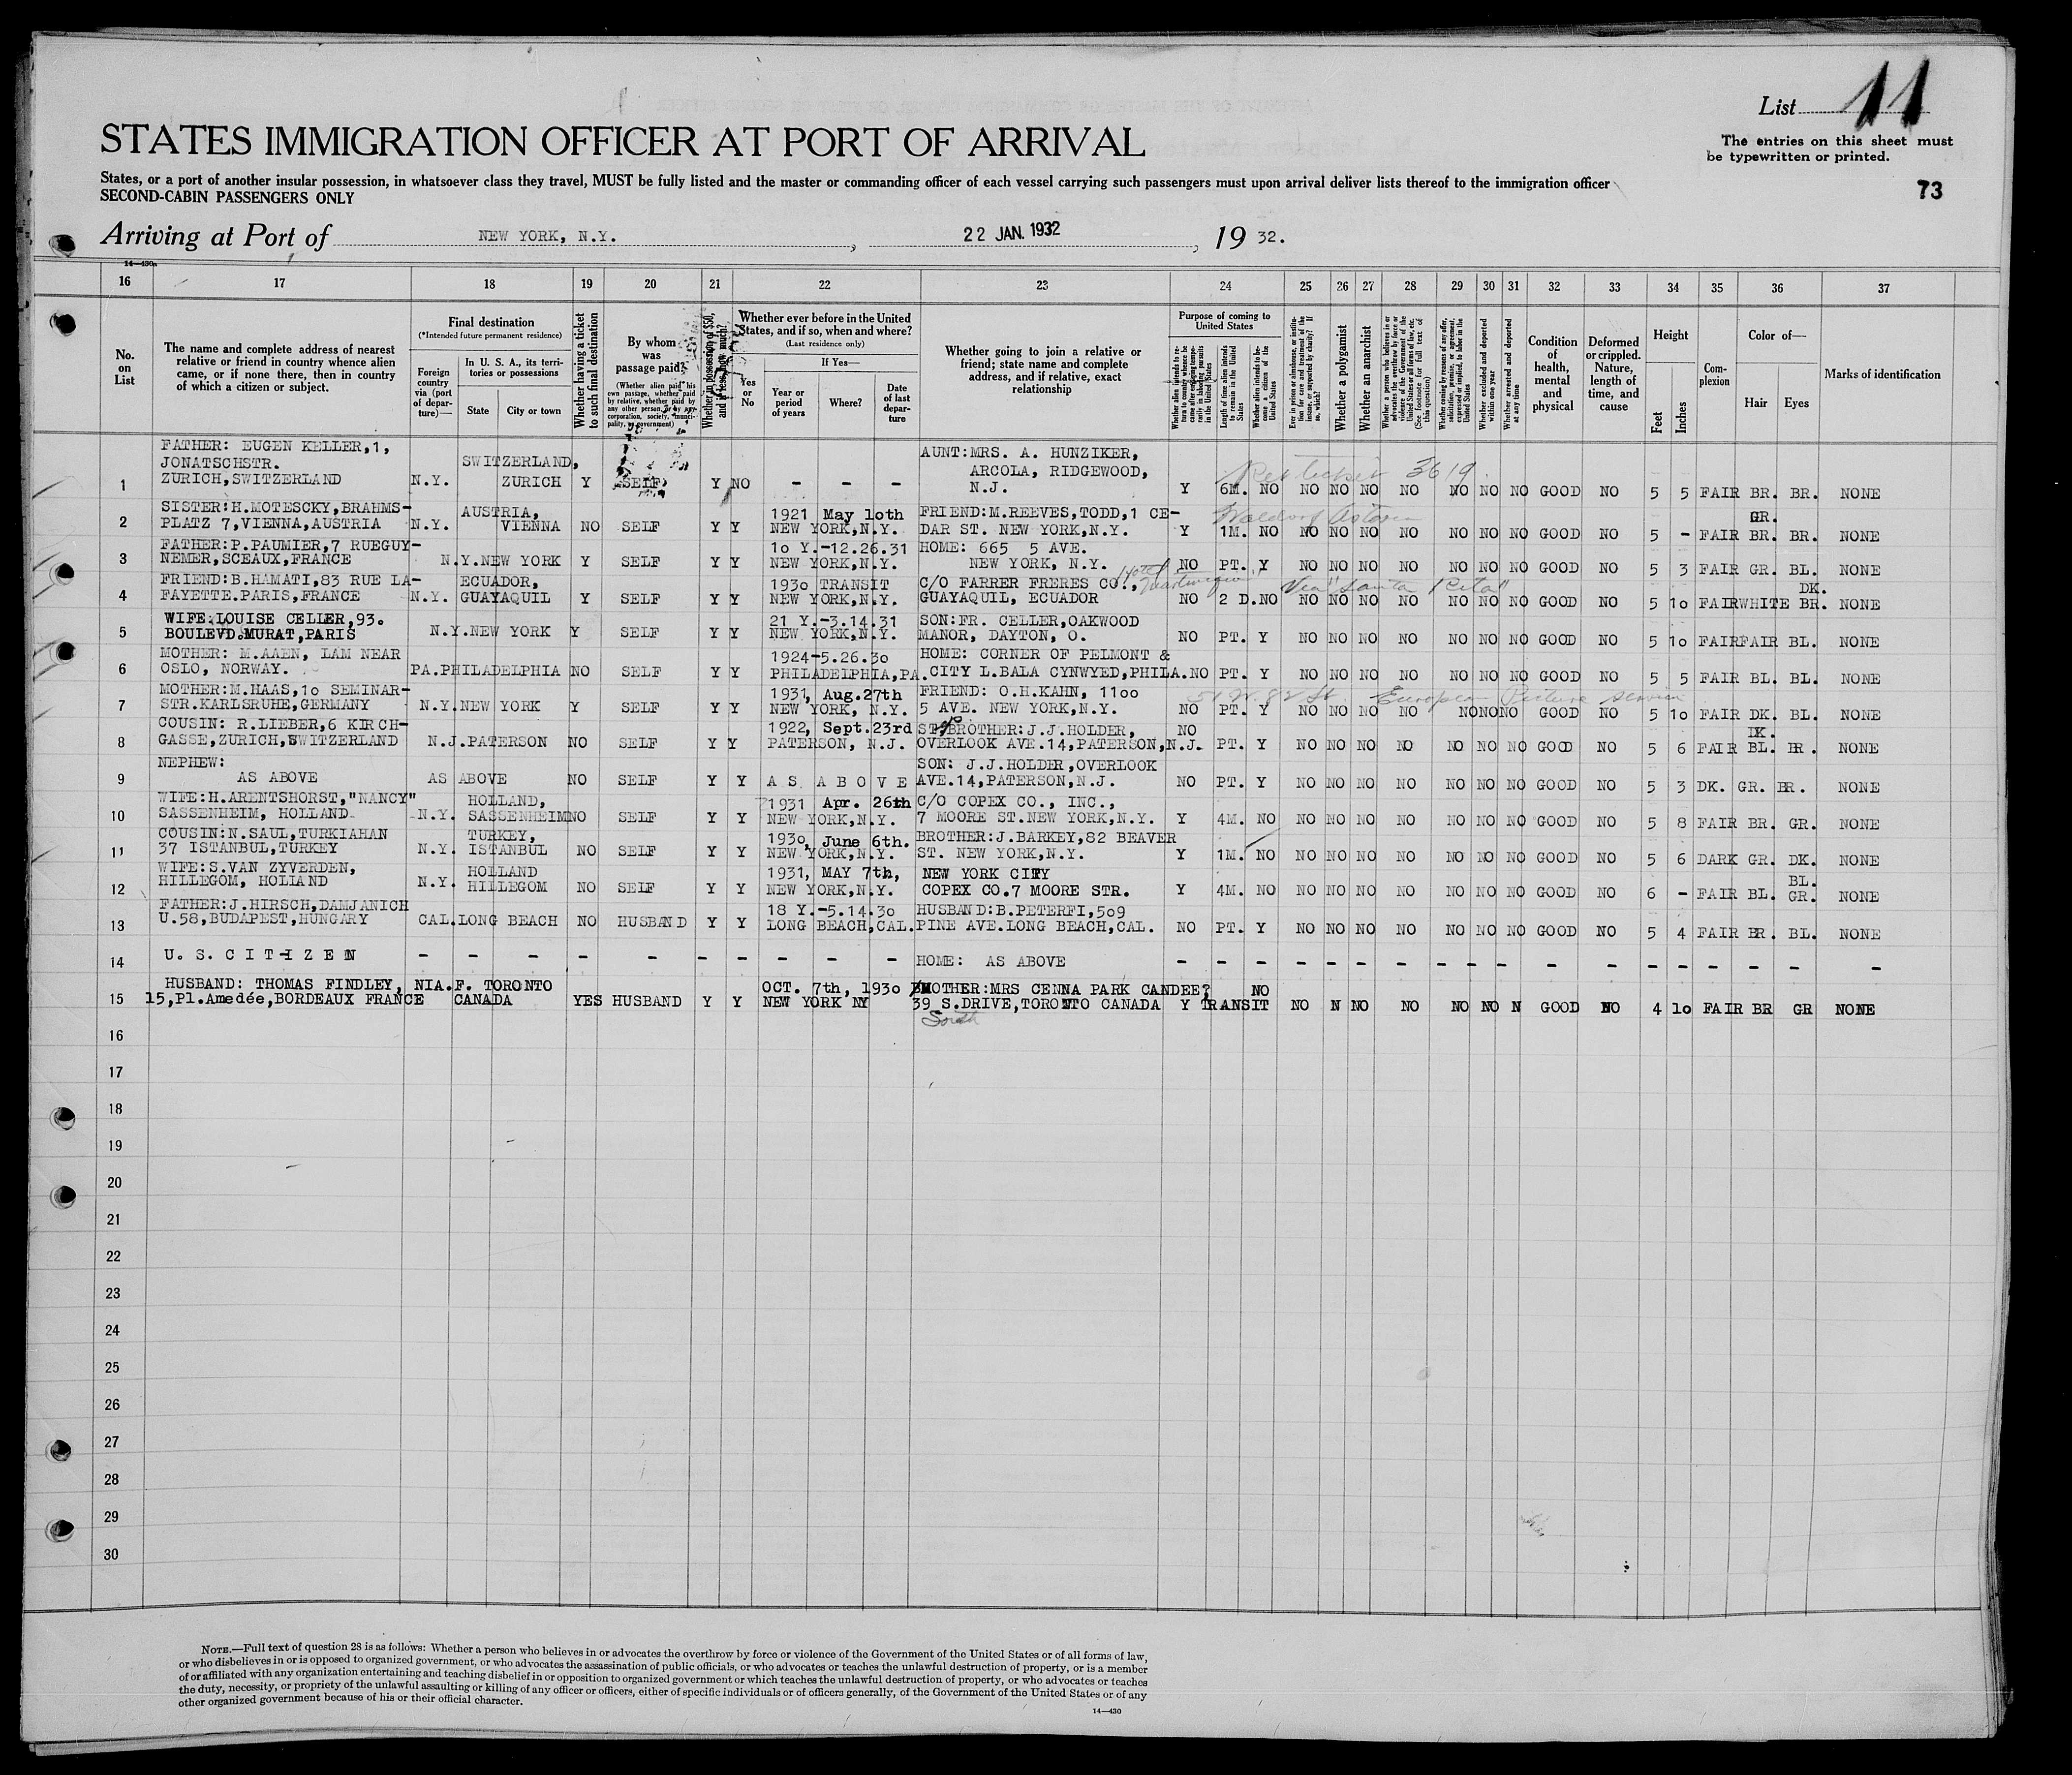 List 11
STATES IMMIGRATION OFFICER AT PORT OF ARRIVAL
The entries on this sheet must
be typewritten or printed.
States, or a port of another insular possession, in whatsoever class they travel, MUST be fully listed and the master or commanding officer of each vessel carrying such passengers must upon arrival deliver lists thereof to the immigration officer
SECOND-CABIN PASSENGERS ONLY
73
Arriving at Port of NEW YORK, N.Y., 22 JAN. 1932, 19 32.
14—430a
16 17 18 19 20 21 22 23 24 25 26 27 28 29 30 31 32 33 34 35 36 37
No. on List
The name and complete address of nearest relative or friend in country whence alien came, or if none there, then in country of which a citizen or subject.
Final destination
(*Intended future permanent residence)
Foreign country via (port of departure)—
In U. S. A., its territories or possessions
State
City or town
Whether having a ticket to such final destination
By whom was passage paid?
(Whether alien paid his own passage, whether paid by relative, whether paid by any other person, or by any corporation, society, municipality, or government)
Whether in possession of $50, and if less, how much?
Whether ever before in the United States, and if so, when and where?
(Last residence only)
Yes or No
If Yes—
Year or period of years
Where?
Date of last departure
Whether going to join a relative or friend; state name and complete address, and if relative, exact relationship
Purpose of coming to United States
Whether alien intends to return to country whence he came after engaging temporarily in laboring pursuits in the United States
Length of time alien intends to remain in the United States
Whether alien intends to become a citizen of the United States
Ever in prison or almshouse, or institution for care and treatment of the insane, or supported by charity? If so, which?
Whether a polygamist
Whether an anarchist
Whether a person who believes in or advocates the overthrow by force or violence of the Government of the United States or all forms of law, etc. (See footnote for full text of this question)
Whether coming by reason of any offer, solicitation, promise, or agreement, expressed or implied, to labor in the United States
Whether excluded and deported within one year
Whether arrested and deported at any time
Condition of health, mental and physical
Deformed or crippled. Nature, length of time, and cause
Height
Feet
Inches
Complexion
Color of—
Hair
Eyes
Marks of identification
FATHER: EUGEN KELLER,1, AUNT:MRS. A. HUNZIKER,
JONATSCHSTR. SWITZERLAND, ARCOLA, RIDGEWOOD, 3619
1 ZURICH,SWITZERLAND N.Y. ZURICH Y SELF Y NO - - - N.J. Y 6M. NO NO NO NO NO NO NO NO GOOD NO 5 5 FAIR BR. BR. NONE
SISTER:H.MOTESCKY,BRAHMS- AUSTRIA, 1921 May 10th FRIEND:M.REEVES,TODD,1 CE- Waldorf Astoria GR.
2 PLATZ 7,VIENNA,AUSTRIA N.Y. VIENNA NO SELF Y Y NEW YORK,N.Y. DAR ST. NEW YORK,N.Y. Y 1M. NO NO NO NO NO NO NO NO GOOD NO 5 - FAIR BR. BR. NONE
FATHER:P.PAUMIER,7 RUEGUY- 10 Y.-12.26.31 HOME: 665 5 AVE.
3 NEMER,SCEAUX,FRANCE N.Y.NEW YORK Y SELF Y Y NEW YORK,N.Y. NEW YORK, N.Y. NO PT. Y NO NO NO NO NO NO NO GOOD NO 5 3 FAIR GR. BL. NONE
FRIEND:B.HAMATI,83 RUE LA- ECUADOR, 1930 TRANSIT C/O FARRER FRERES CO., Hotel Martinique Via "Santa Rita" DK.
4 FAYETTE.PARIS,FRANCE N.Y. GUAYAQUIL Y SELF Y Y NEW YORK,N.Y. GUAYAQUIL, ECUADOR NO 2 D.NO NO NO NO NO NO NO NO GOOD NO 5 10 FAIRWHITE BR. NONE
WIFE:LOUISE CELLER,93. 21 Y.-3.14.31 SON:FR. CELLER,OAKWOOD
5 BOULEVD.MURAT,PARIS N.Y.NEW YORK Y SELF Y Y NEW YORK,N.Y. MANOR, DAYTON, O. NO PT. Y NO NO NO NO NO NO NO GOOD NO 5 10 FAIRFAIR BL. NONE
MOTHER: M.AAEN, LAM NEAR 1924-5.26.30 HOME: CORNER OF PELMONT &
6 OSLO, NORWAY. PA.PHILADELPHIA NO SELF Y Y PHILADELPHIA,PA. CITY L.BALA CYNWYED,PHILA.NO PT. Y NO NO NO NO NO NO NO GOOD NO 5 5 FAIR BL. BL. NONE
MOTHER:M.HAAS,10 SEMINAR- 1931, Aug.27th FRIEND: O.H.KAHN, 1100 51 W. 82 St. European Picture Service
7 STR.KARLSRUHE,GERMANY N.Y.NEW YORK Y SELF Y Y NEW YORK, N.Y. 5 AVE. NEW YORK,N.Y. NO PT. Y NO NO NO NO NO NO NO GOOD NO 5 10 FAIR DK. BL. NONE
COUSIN: R.LIEBER,6 KIRCH- 1922, Sept.23rd STEPBROTHER:J.J.HOLDER, NO DK.
8 GASSE,ZURICH,SWITZERLAND N.J.PATERSON NO SELF Y Y PATERSON, N.J. OVERLOOK AVE.14,PATERSON,N.J. PT. Y NO NO NO NO NO NO NO GOOD NO 5 6 FAIR BL. BR. NONE
NEPHEW: SON: J.J.HOLDER,OVERLOOK
9 AS ABOVE AS ABOVE NO SELF Y Y A S A B O V E AVE.14,PATERSON,N.J. NO PT. Y NO NO NO NO NO NO NO GOOD NO 5 3 DK. GR. BR. NONE
WIFE:H.ARENTSHORST,"NANCY" HOLLAND, 1931 Apr. 26th C/O COPEX CO., INC.,
10 SASSENHEIM, HOLLAND N.Y. SASSENHEIM NO SELF Y Y NEW YORK,N.Y. 7 MOORE ST.NEW YORK,N.Y. Y 4M. NO NO NO NO NO NO NO NO GOOD NO 5 8 FAIR BR. GR. NONE
COUSIN:N.SAUL,TURKIAHAN TURKEY, 1930, June 6th. BROTHER:J.BARKEY,82 BEAVER
11 37 ISTANBUL,TURKEY N.Y. ISTANBUL NO SELF Y Y NEW YORK,N.Y. ST. NEW YORK,N.Y. Y 1M. NO NO NO NO NO NO NO NO GOOD NO 5 6 DARK GR. DK. NONE
WIFE:S.VAN ZYVERDEN, HOLLAND 1931, MAY 7th, NEW YORK CITY BL.
12 HILLEGOM, HOLLAND N.Y. HILLEGOM NO SELF Y Y NEW YORK,N.Y. COPEX CO.7 MOORE STR. Y 4M. NO NO NO NO NO NO NO NO GOOD NO 6 - FAIR BL. GR. NONE
FATHER:J.HIRSCH,DAMJANICH 18 Y.-5.14.30 HUSBAND:B.PETERFI,509
13 U.58,BUDAPEST,HUNGARY CAL.LONG BEACH NO HUSBAND Y Y LONG BEACH,CAL. PINE AVE.LONG BEACH,CAL. NO PT. Y NO NO NO NO NO NO NO GOOD NO 5 4 FAIR BR. BL. NONE
14 U. S. C I T I Z E N - - - - - - - - - - HOME: AS ABOVE - - - - - - - - - - - - - - - - - -
HUSBAND: THOMAS FINDLEY, NIA.F. TORONTO OCT. 7th, 1930 MOTHER:MRS CENNA PARK CANDEE? NO
15 15,Pl.Amedée,BORDEAUX FRANCE CANADA YES HUSBAND Y Y NEW YORK NY 39 S.DRIVE,TORONTO CANADA Y TRANSIT NO N NO NO NO NO N GOOD NO 4 10 FAIR BR GR NONE
South
16
17
18
19
20
21
22
23
24
25
26
27
28
29
30
NOTE.—Full text of question 28 is as follows: Whether a person who believes in or advocates the overthrow by force or violence of the Government of the United States or of all forms of law,
or who disbelieves in or is opposed to organized government, or who advocates the assassination of public officials, or who advocates or teaches the unlawful destruction of property, or is a member
of or affiliated with any organization entertaining and teaching disbelief in or opposition to organized government or which teaches the unlawful destruction of property, or who advocates or teaches
the duty, necessity, or propriety of the unlawful assaulting or killing of any officer or officers, either of specific individuals or of officers generally, of the Government of the United States or of any
other organized government because of his or their official character.
14—430